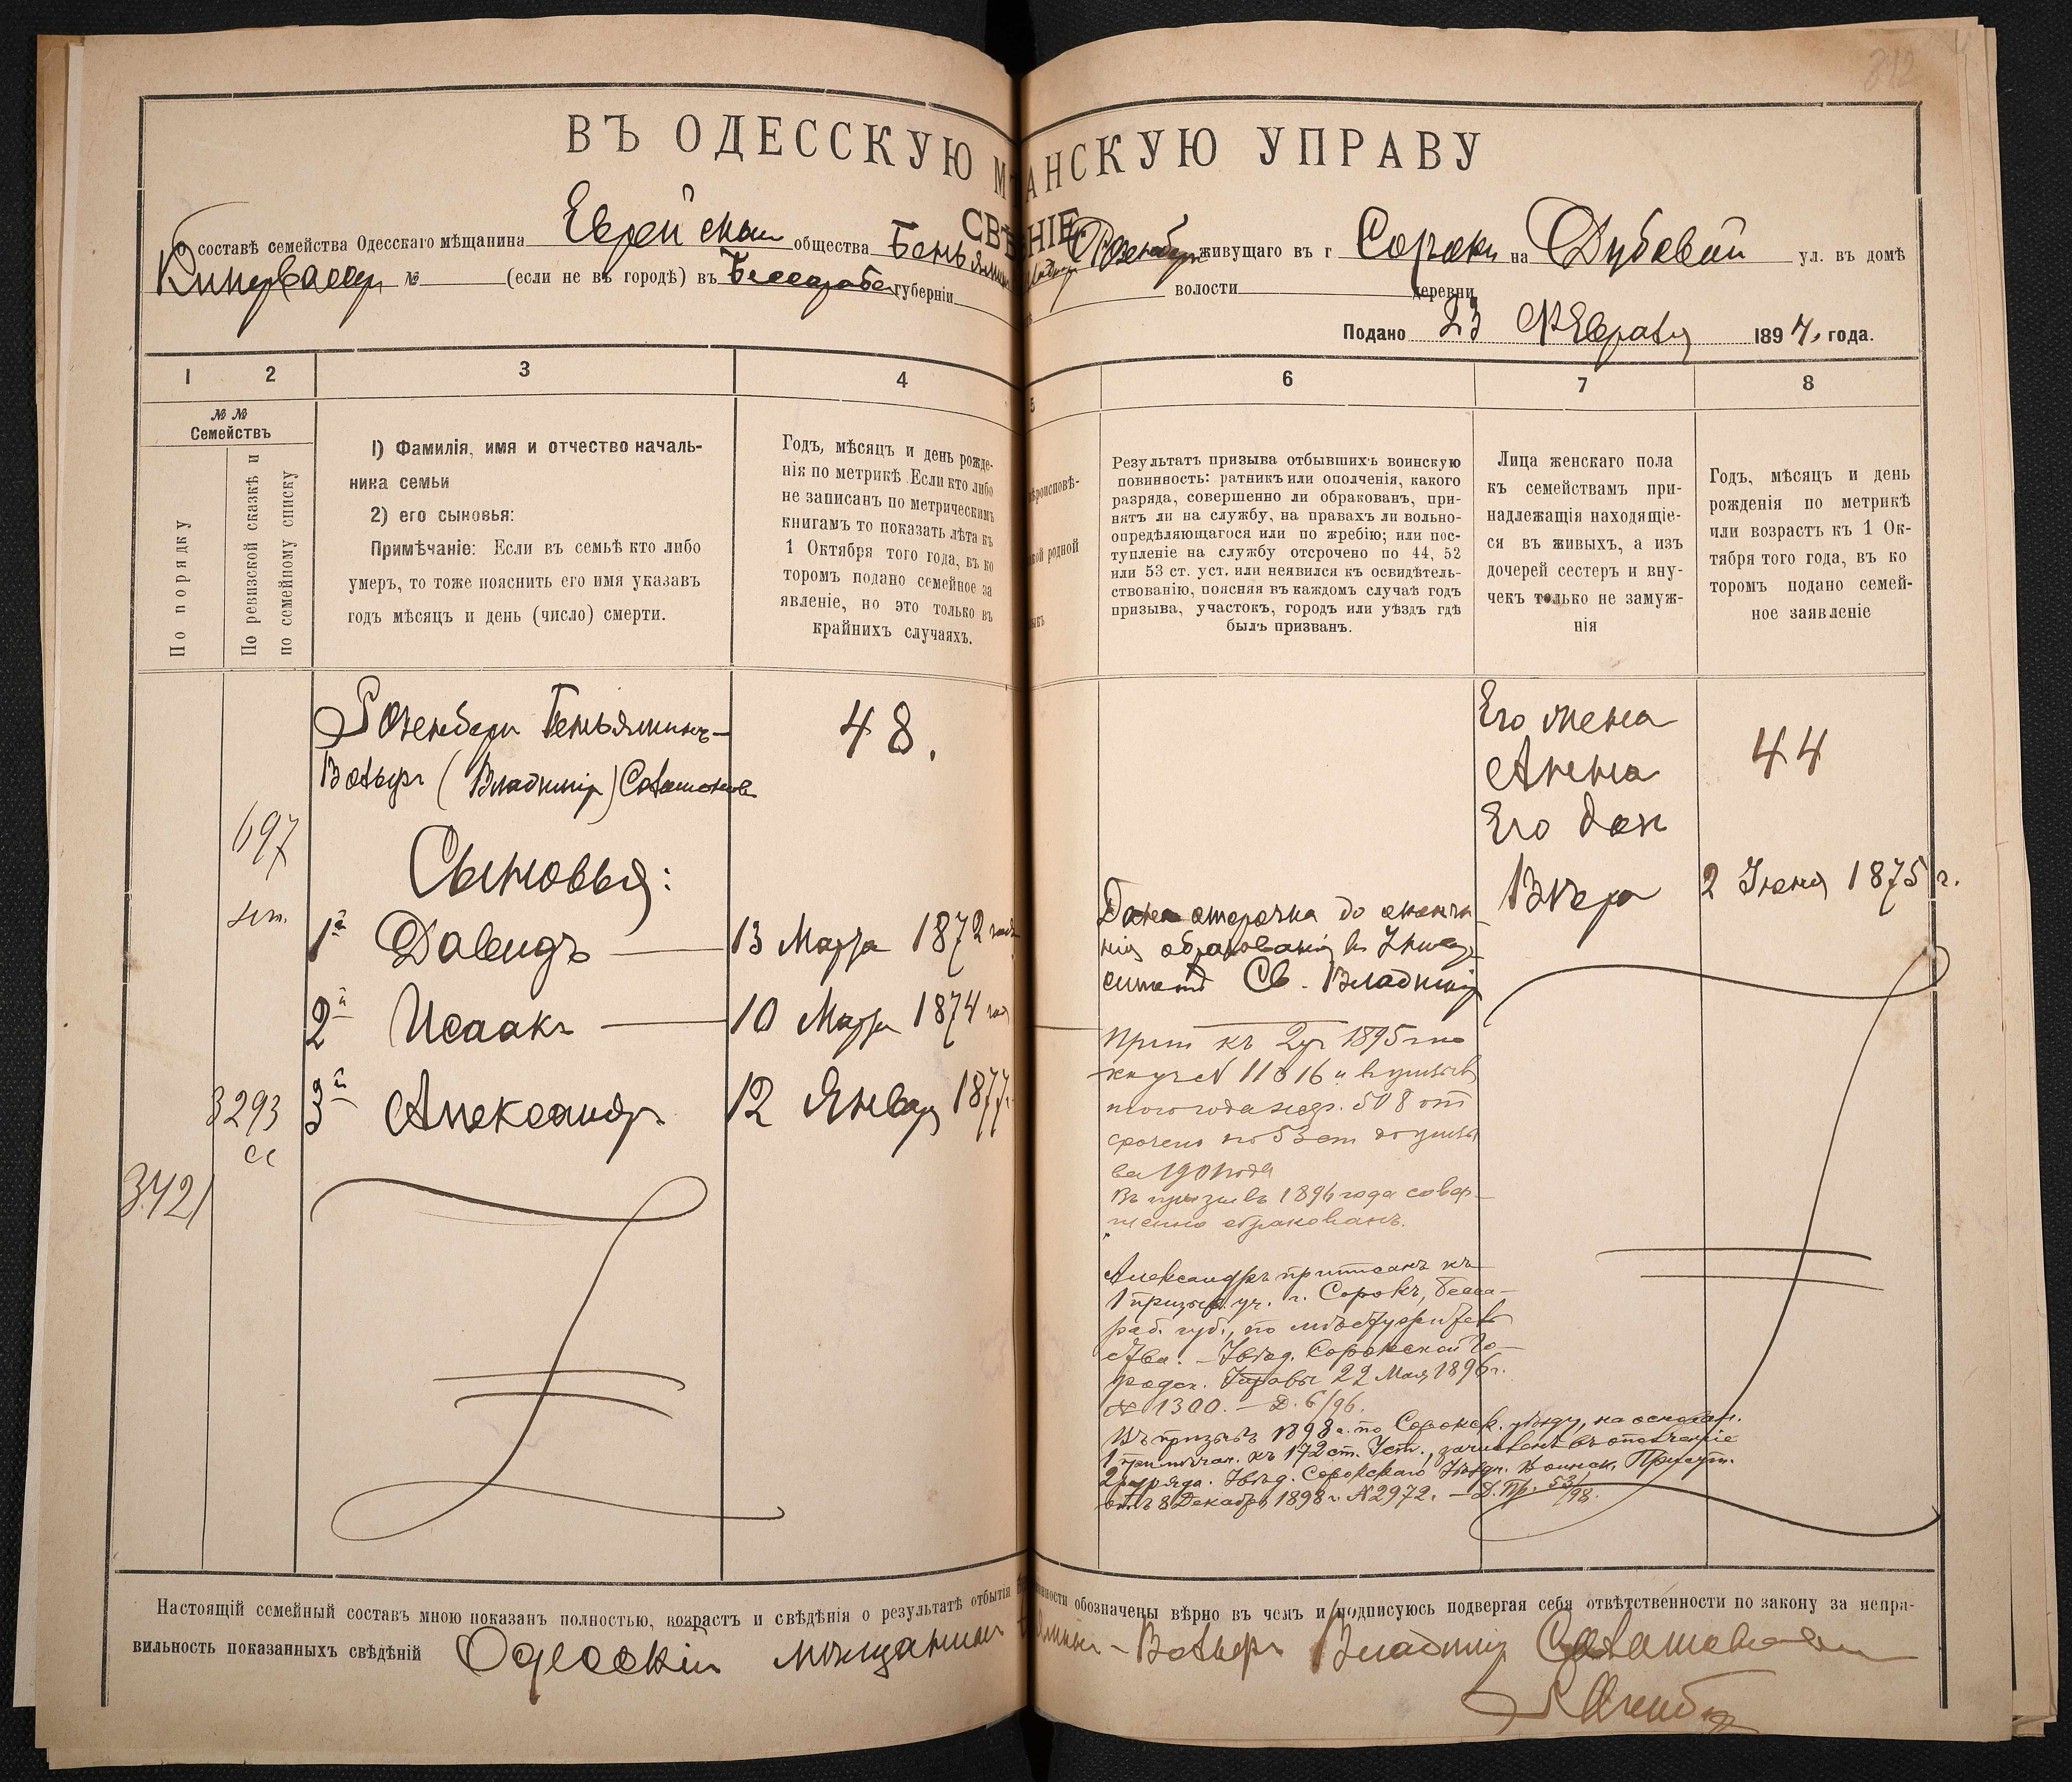 312
ВЪ ОДЕССКУЮ М АНСКУЮ УПРАВУ
СВѢ НІЕ
О составѣ семейства Одесскаго мѣщанина Еврейскаго общества Беньямин Розенберг живущаго въ г Сороки на Дубовой ул. въ домѣ
№ (если не въ городѣ) въ Бессараб губерніи волости деревни
Подано 23 Февраля 1894, года.
1 2 3 4 5 6 7 8
№ №
Семействъ
По порядку
По ревизской сказкѣ и
по семейному списку
1) Фамилія, имя и отчество началь-
ника семьи
2) его сыновья:
Примѣчаніе: Если въ семьѣ кто либо
умеръ, то тоже пояснить его имя указавъ
годъ мѣсяцъ и день (число) смерти.
Годъ, мѣсяцъ и день рожде-
нія по метрикѣ. Если кто либо
не записанъ по метрическимъ
книгамъ то показать лѣта къ
1 Октября того года, въ ко
торомъ подано семейное за
явленіе, но это только въ
крайнихъ случаяхъ.
ѣроисповѣ-
кой родной
ыкъ
Результатъ призыва отбывшихъ воинскую
повинность: ратникъ или ополченія, какого
разряда, совершенно ли обракованъ, при-
нятъ ли на службу, на правахъ ли вольно-
опредѣляющагося или по жребію; или пос-
тупленіе на службу отсрочено по 44, 52
или 53 ст. уст. или неявился къ освидѣтель-
ствованію, поясняя въ каждомъ случаѣ годъ
призыва, участокъ, городъ или уѣздъ гдѣ
былъ призванъ.
Лица женскаго пола
къ семействамъ при-
надлежащія находящіе-
ся въ живыхъ, а изъ
дочерей сестеръ и вну-
чекъ только не замуж-
нія
Годъ, мѣсяцъ и день
рожденія по метрикѣ
или возрастъ къ 1 Ок-
тября того года, въ ко
торомъ подано семей-
ное заявленіе
Розенберг Беньяминъ-
Вольфъ (Владимір) Саламонов
48.
697
Сыновья:
1й Давидъ — 13 Марта 1872 года
2й Исаакъ — 10 Марта 1874 год
3й Александр 12 Январ 1877 г.
3293
3421
Его жена
Анна
44
Его доч
Вѣра
2 Іюня 1875 г.
Дана отсрочка до оконча
нія образованія въ Универ
ситетѣ Св. Владимір
Прип къ 2 уч 1895 г по
11016 и
508 от
срочено по 53 ст до призы
ва 1901 года
Въ призывъ 1896 года совер-
шенно обракованъ.
Александръ приписанъ къ
1 призыв. уч. г. Сорокъ, Бесса-
раб. губ., по мѣстужитель
ства. — Увѣд. Сорокской Го-
родск. Управы 22 Мая 1896 г.
№ 1300. — Д. 6/96.
Въ призывъ 1898 г. по Сорокск. уѣзду, на основан.
1 примѣчан. къ 172 ст. Уст., зачисленъ въ ополченіе
2 разряда. Увѣд. Сорокскаго Уѣздн. Воинск. Присут.
отъ 8 Декабря 1898 г. № 2972. — Д. Пр. 53/98.
Настоящій семейный составъ мною показанъ полностью, возрастъ и свѣдѣнія о результатѣ отбытія нности обозначены вѣрно въ чемъ и подписуюсь подвергая себя отвѣтственности по закону за непра-
вильность показанныхъ свѣдѣній Одесскій мѣщанинъ - Вольфъ Владимір Саламонович
Розенберг